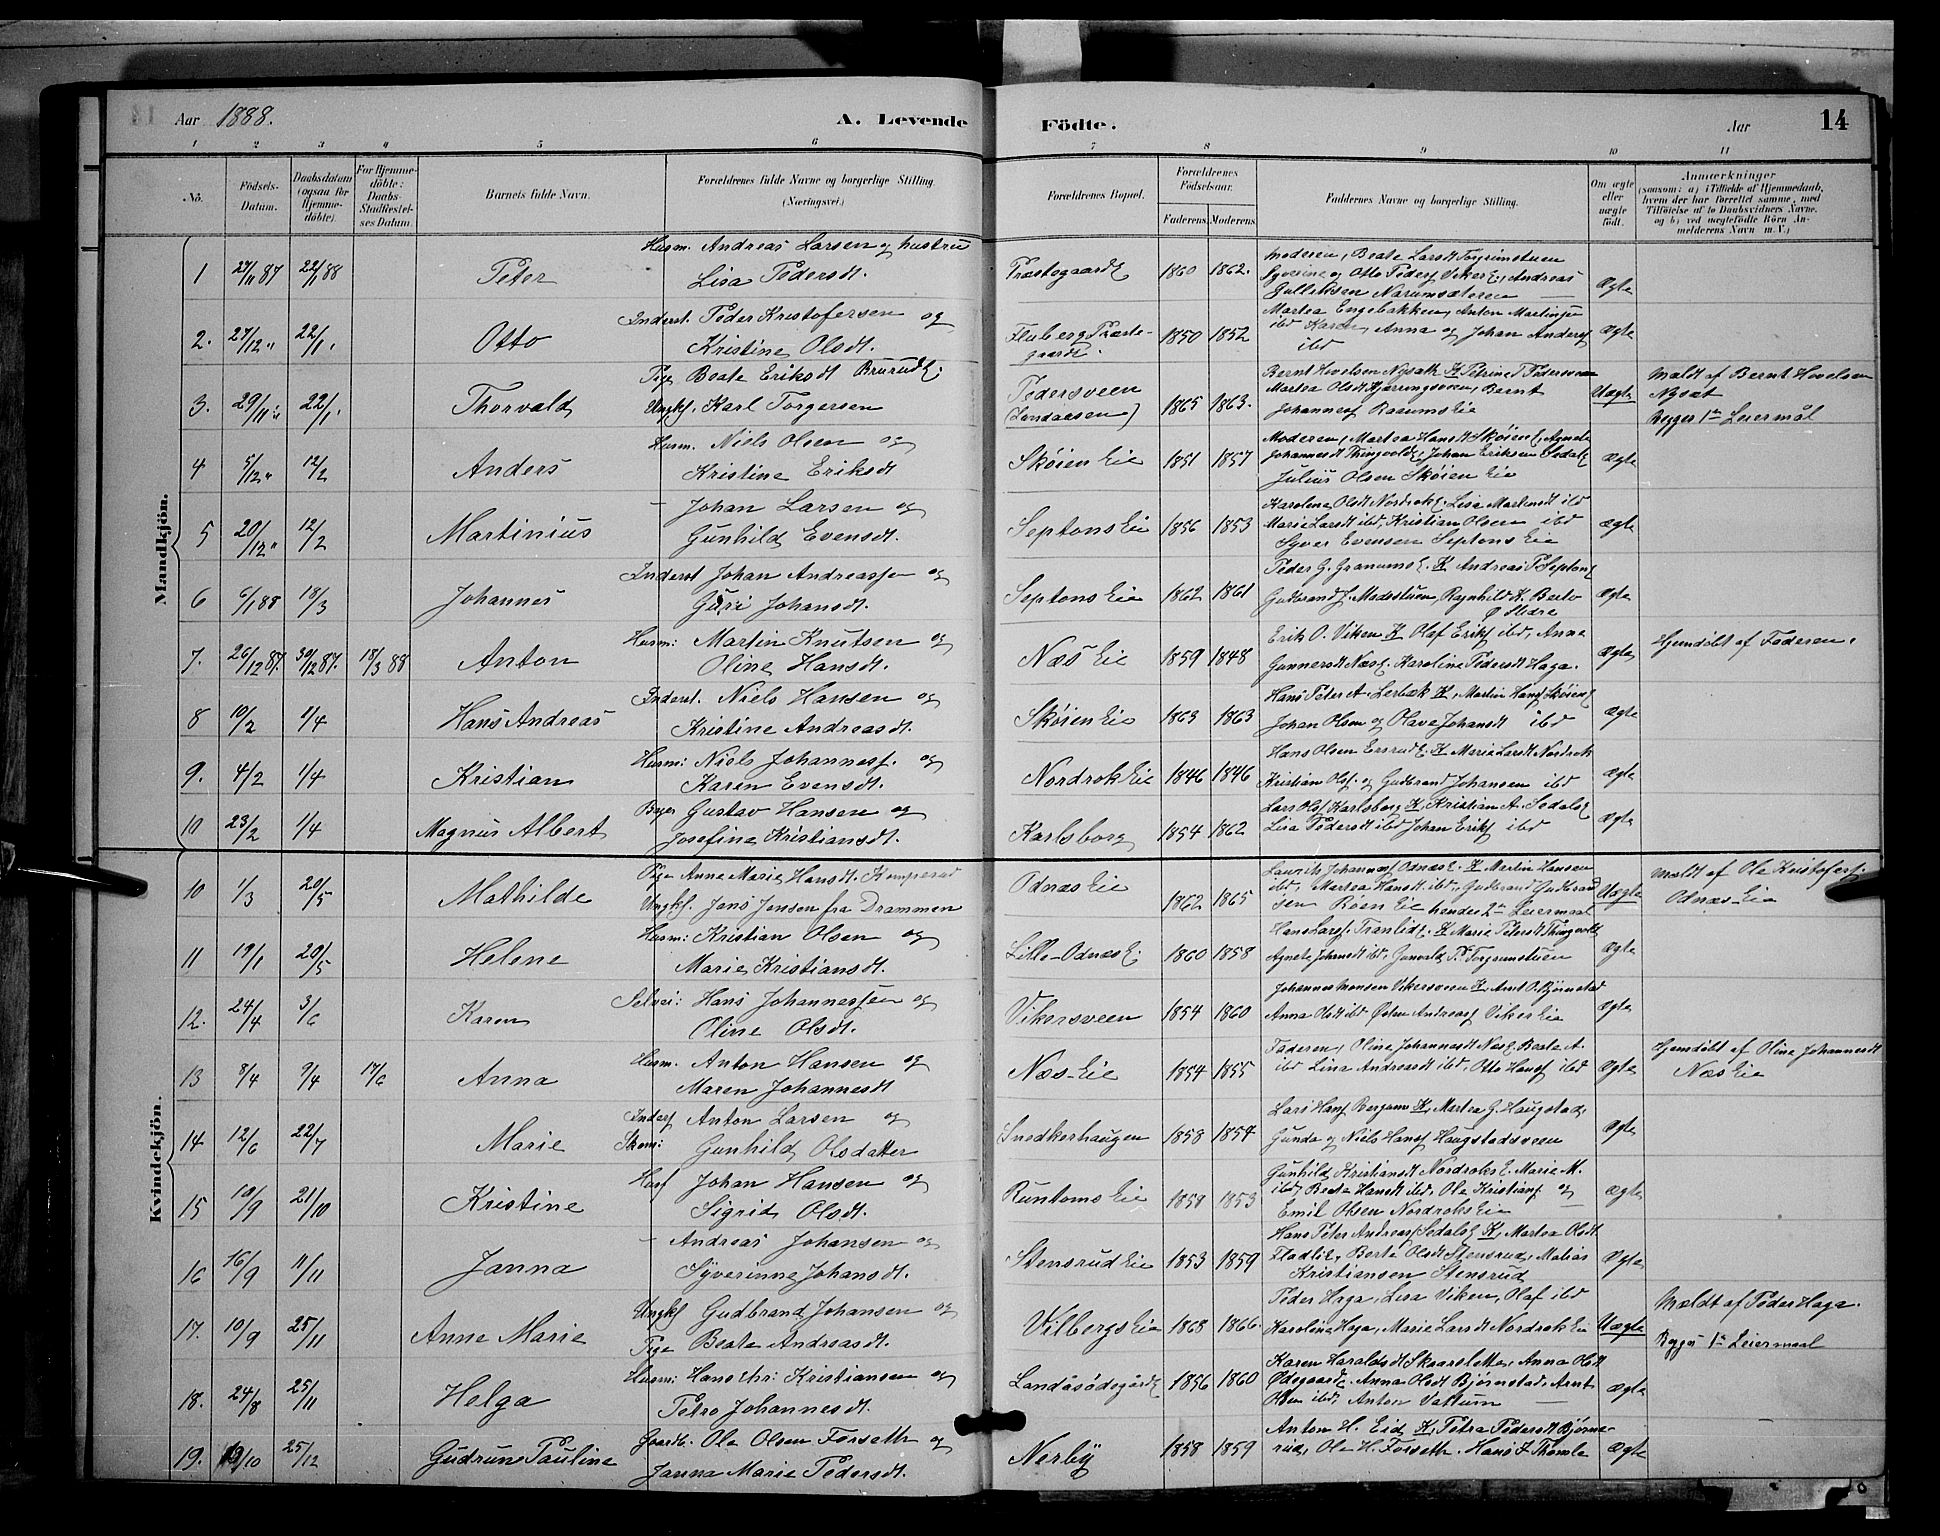 Aar 1888. A. Levende Födte. Aar 14
1 2 3 4 5 6 7 8 9 10 11
No. Födsels-Datum. Daabsdatum (ogsaa for Hjemmedöbte). For Hjemmedöbte: Daabs-Stadfæstelses Datum. Barnets fulde Navn. Forældrenes fulde Navne og borgerlige Stilling. (Næringsvei.) Forældrenes Bopæl. Forældrenes Födselsaar. Faderens. Moderens. Faddernes Navne og borgerlige Stilling. Om ægte eller uægte födt. Anmærkninger (saasom: a) i Tilfælde af Hjemmedaab, hvem der har forrettet samme, med Tilföielse af to Daabsvidners Navne, og b) ved uægtefödte Börn Anmelderens Navn m. V.)
Mandkjön.
1 27/11 87 22/1 88 Peter Husm. Andreas Larsen og hustru
Lisa Pedersdt. Præstegaards E 1860 1862. Moderen, Beate Larsdt Torgrimstuen
Syverine og Otto Peders Viker E, Andreas
Gulliksen Narumsæteren Ægte
2. 27/12 " 22/1 " Otto Inderst. Peder Kristofersen og
Kristine Olsdt. Fluberg Præstegaard. 1850 1852 Martea Engebakken, Anton Martinius
ibd Karen, Anna og Johan Anders
ibd Ægte
3. 29/11 " 22/1 " Thorvald Pige Beate Eriksdt Brurud E.
Ungkf. Karl Torgersen Pedersveen
(Landaasen) 1865 1863. Bernt Hovelsen Nysæth K Petrine P Pedersveen
Martea Olsdt Hjerringsveen, Bernt
Johannes Raarums Eie Uægte Mældt af Bernt Hovelsen
Nysæt
Begges 1ste Leiermål
4 5/12 " 12/2 Anders Husm. Niels Olsen og
Kristine Eriksdt Skøien Eie 1851 1857 Moderen, Martea Hansdt Skøien E, Agnete
Johannesdt Thingvold E, Johan Eriksen Sedals E
Julius Olsen Skøien Eie Ægte
5 20/12 " 12/2 Martinius – Johan Larsen og
Gunhild Evensdt. Septons Eie 1856 1853 Karolena Olsdt Nordrok E. Lisa Martinsdt ibd
Marie Larsdt ibd, Kristian Olsen ibd
Syver Evensen Septons Eie Ægte
6 6/1 88 18/3 Johannes Inderst Johan Andreassen og
Guri Johansdt. Septons Eie 1862 1861 Peder G. Granums E. K Andreas P Septon E
Gudbrand J. Madsstuen, Ragnhild K. Berto Ægte
7. 26/12 87. 30/12 87. 18/3 88 Anton Husm: Martin Knutsen og
Oline Hansdt. Næs Eie 1859 1848 Erik O. Viken K Olaf Eriks ibd, Anne
Gunnersdt Næs E. Karoline Pedersdt Haga. Ægte Hjemdöbt af Faderen.
8 10/2 1/4 Hans Andreas Inderst. Niels Hansen og
Kristine Andreasdt. Skøien Eie 1863 1863 Hans Peter A. Lerbæk K, Martin Hans Skøien E
Johan Olsen og Olave Johansdt ibd Ægte
9. 4/2 1/4 Kristian Husm: Niels Johannesf. og
Karen Evensdt. Nordrok Eie 1846 1846 Hans Olsen Ersrud E. K Marie Larsdt Nordrok
Kristian Olsf. og Gudbrand Johansen ibd Ægte
10 23/2 1/4 Magnus Albert Byer Gustav Hansen og
Josefina Kristiansdt. Karlsborg 1854 1862 Lars Olsf Karlsborg K, Kristian A. Sedals E
Lisa Pedersdt ibd Johan Eriks ibd Ægte
Kvindekjön.
10 1/3 20/5 Mathilde Pige Anne Marie Hansdt. Kamperud
Ungkf. Jens Jensen fra Drammen Odnæs Eie 1862 1865 Lauritz Johannesf Odnæs E. K Martin Hansen
ibd, Martea Hansdt ibd, Gudbrand Gudbrandsen
Røen Eie hendes 2det Leiermaal Uægte Mældt af Ole Kristofers.
Odnæs Eie
11 19/1 20/5 Helene Husm: Kristian Olsen og
Marie Kristiansdt. Lille-Odnæs E. 1860 1858 Hans Larsf. Tranlid E. K Marie Petersdt Thingvold E
Agnete Johansdt ibd. Gunvald P. Torgrimstuen Ægte
12. 24/4 3/6 Karen Selvei: Hans Johannessen og
Oline Olsdt. Vikersveen 1854 1860 Johannes Monsen Vikersveen K, Arnt O. Bjørnstad
Anna Olsdt ibd Østen Andreas Viker Eie Ægte
13 8/4 9/4 17/6 Anna Husm. Anton Hansen og
Maren Johannesdt Næs-Eie 1854 1855 Faderen, Oline Johannesdt Næs E Beate A.
ibd Lina Andreasdt ibd. Otto Hansf ibd Ægte Hjemdöbt af Oline Johannesdt
Næs Eie
14 12/6 22/7 Marie Inders Anton Larsen og
Skom: Gunhild Olsdatter Snedkerhaugen 1858 1854 Lars Hansf Bergum K, Martea G. Haugstad,
Gunda og Niels Hansf Haugstadsveen Ægte
15 10/9 21/10 Kristine Husf Johan Hansen og
Sigrid Olsdt. Runtoms Eie 1858 1853 Gunhild Kristiansdt Nordroks E. Marie M.
ibd, Beate Hansdt ibd, Ole Kristiansf og
Emil Olsen Nordroks Eie Ægte
16 16/9 11/11 Janna – Andreas Johansen og
Syverinne Johansdt. Stensrud Eie 1853 1859 Hans Peter Andreas Sedals E K, Martea Olsdt
Fladli E, Berte Olsdt Stensrud, Matias
Kristiansen Stensrud Ægte
17. 10/9 25/11 Anne Marie Ungkf Gudbrand Johansen og
Pige Beate Andreasdt. Vilbergs Eie 1868 1866. Peder Haga, Lisa Viken, Olaf ibd
Karolina Haga, Marie Larsdt Nordrok Eie Uægte Mældt af Peder Haga.
Begges 1ste Leiermaal
18. 24/8 25/11 Helga Husm: Hans Chr: Kristiansen og
Petra Johannesdt. Landåsödegård E 1856 1860 Karen Haraldsdt Skaarsletta, Anna Olsdt
Ødegaard E. Anna Olsdt Bjørnstad, Arnt
Olsen ibd, Anton Vattum Ægte
19. 19/10 25/12 Gudrun Pauline Gaardb. Ole Olsen Forseth og
Janna Marie Pedersdt. Nerby 1858 1859 Anton H. Eid K, Petra Pedersdt Bjørnerud,
Ole H. Forseth, Hans L Thomle Ægte